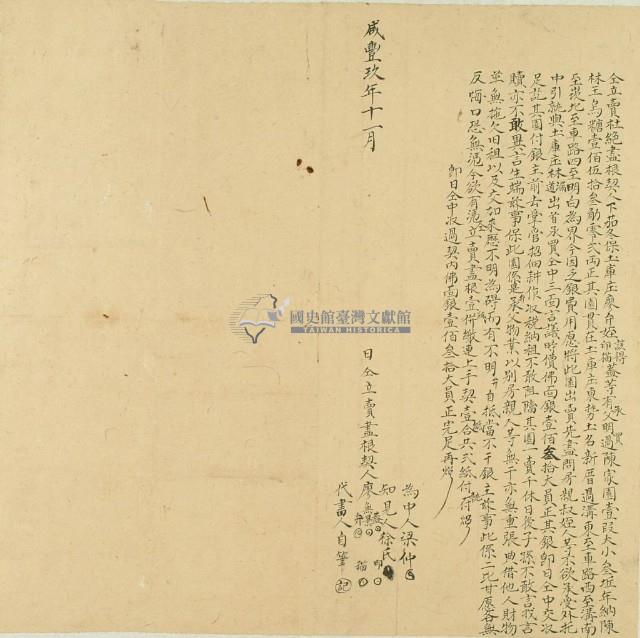 仝立賣杜絕盡根契人下茄苳保土庫庄廖弁、
林王烏糖壹佰伍拾叁觔零弍両正其園貫在土庫庄東勢土名新厝過溝東至車路西至溝南
至崁北至車路四至明白為界今因乏銀費用應將此園出賣先盡問房親叔姪人等不欲承受外托
中引就與土庫庄林 出首承買仝中三面言議時價佛面銀壹佰叁拾大員正其銀即日仝中交收
足訖其園付銀主前去掌管招佃耕作收稅納租不敢阻擋其園一賣千休日後子孫不敢言找言
贖亦不敢異言生端滋事保此園係是承父物業以別房親人等無干亦無重張典借他人財物
並無拖欠旧租以及交加來歷不明為碍而有不明自抵當不干銀主滋事此係二比甘愿各無
反悔口恐無憑今欲有憑仝立賣盡根壹併繳連上手契壹合共弍紙付付炤
即日仝中收過契內佛面銀壹佰叁拾大員正完足再炤
為中人梁仲
知見人徐氏
日仝立賣盡根契人廖
代書人自筆 記
咸豐玖年十一月
國史館臺灣文獻館
TAIWAN HISTORICA